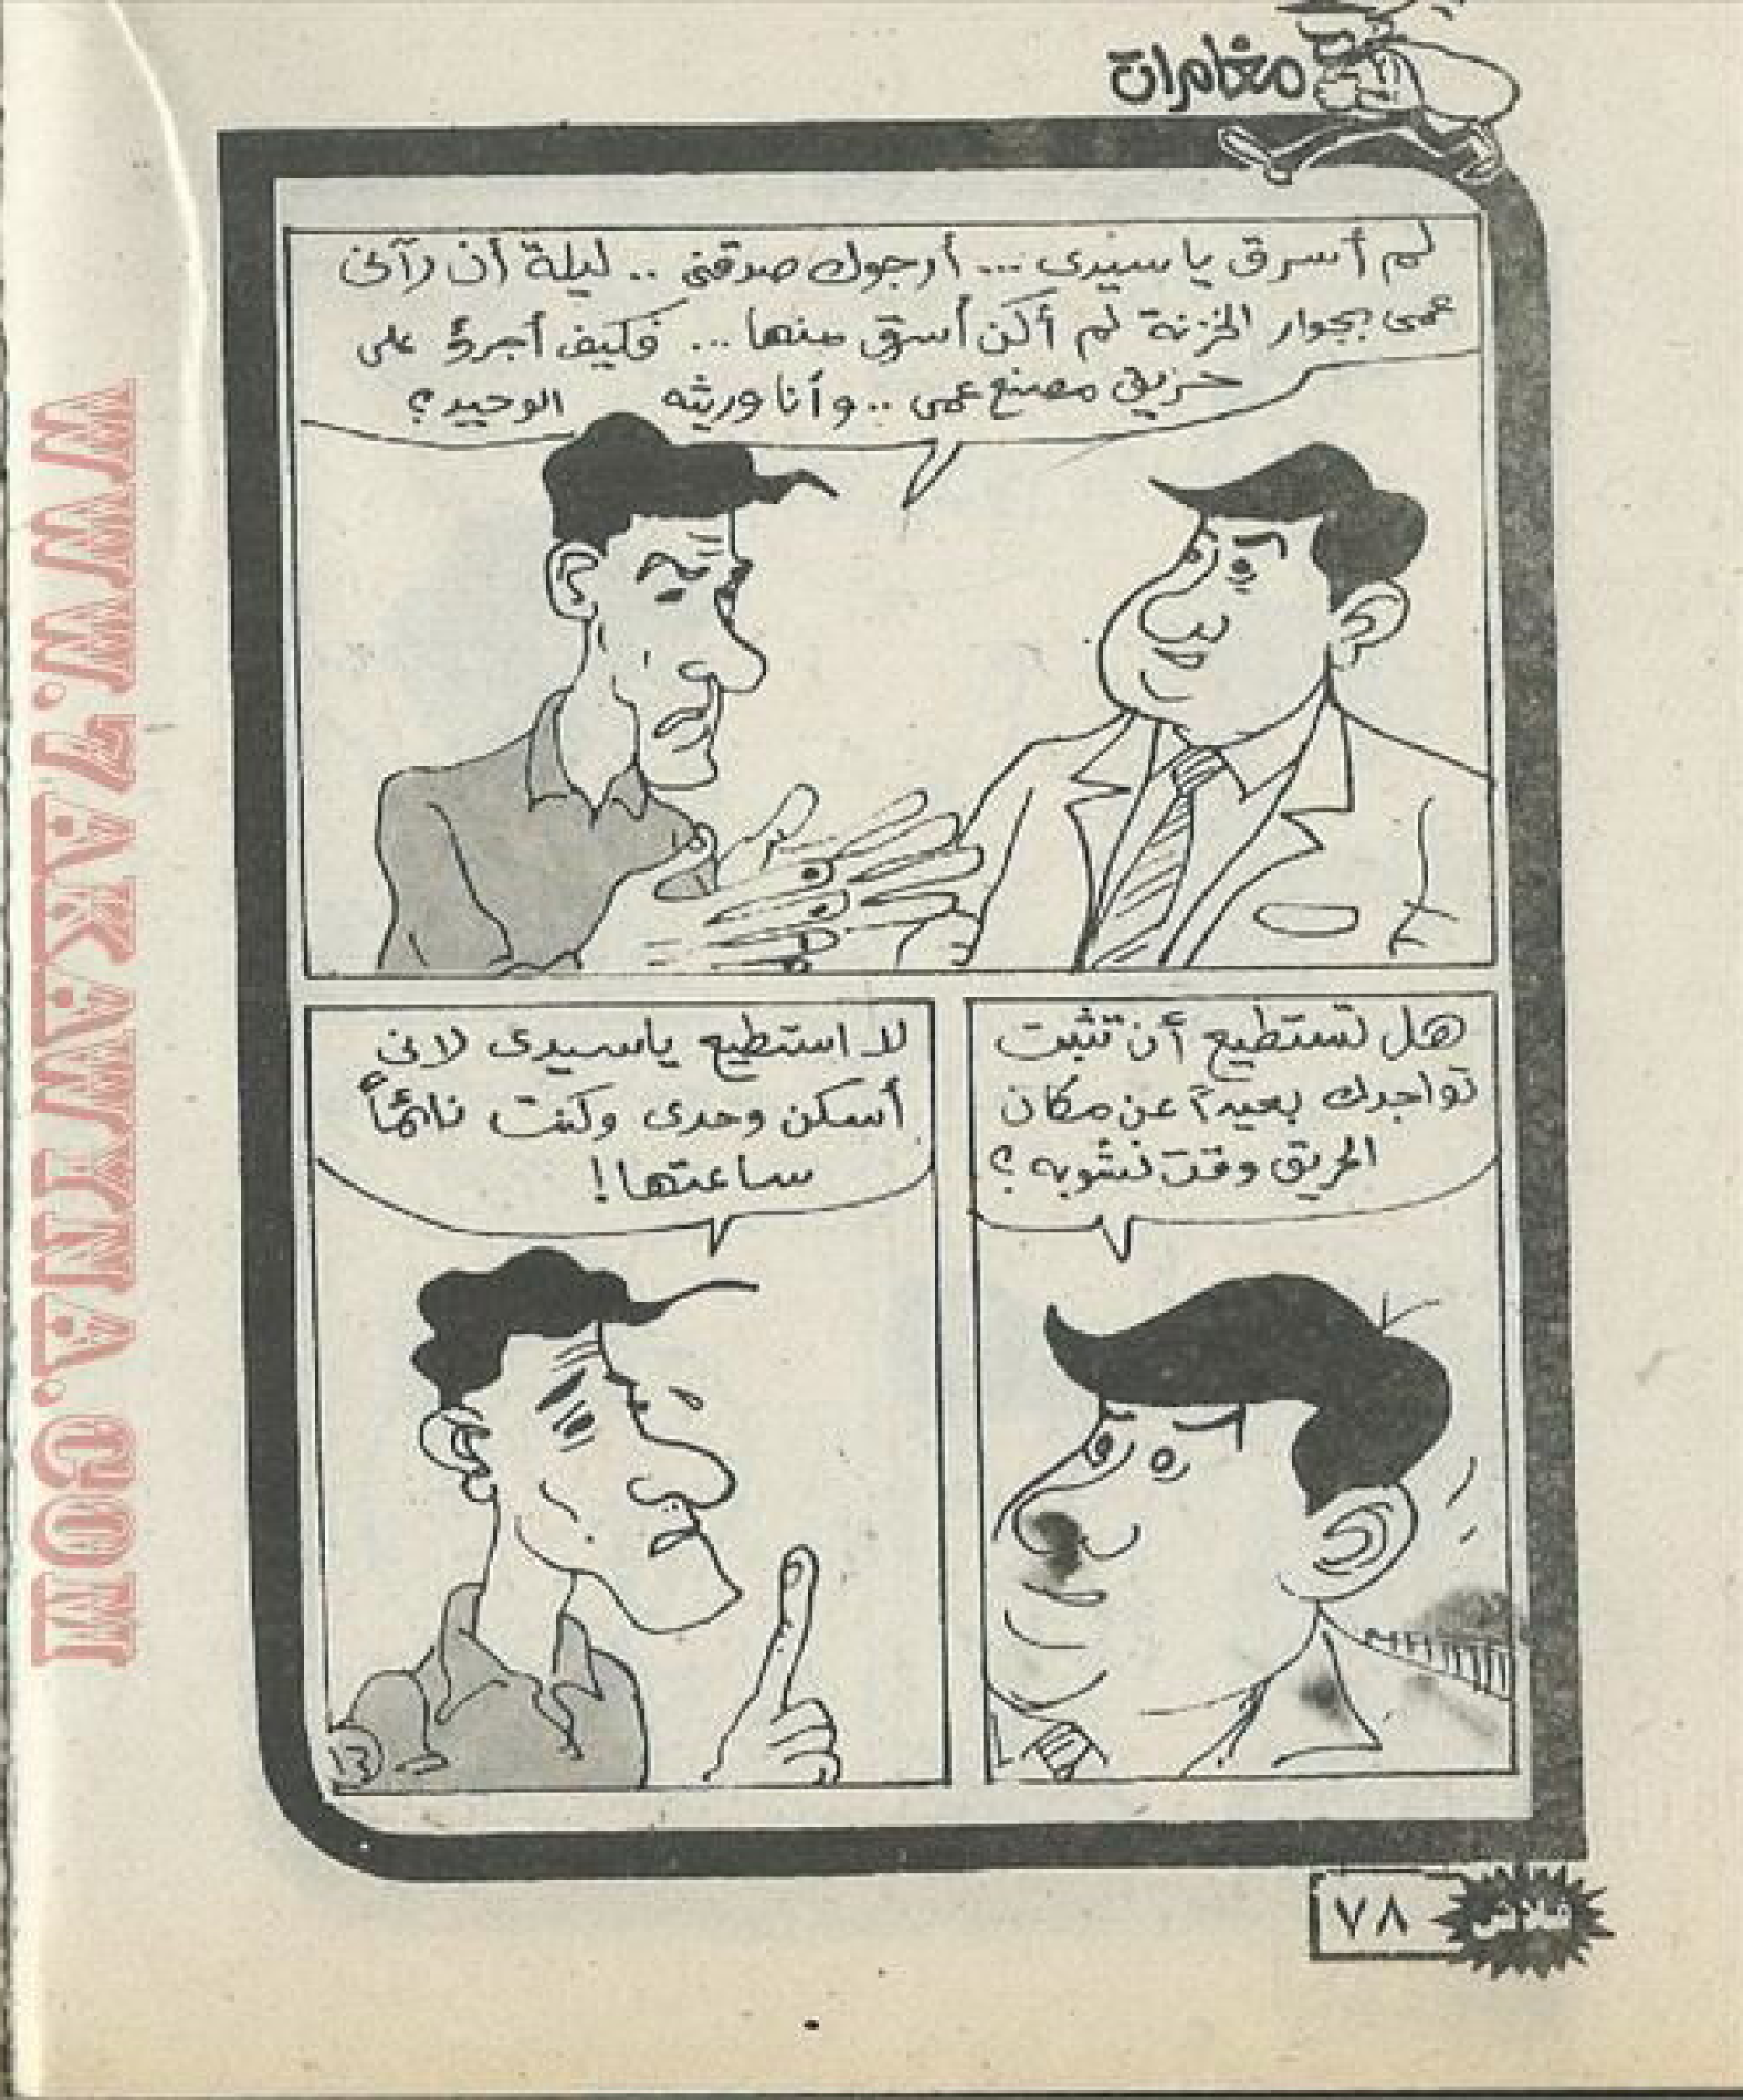 مغامرات
لم أسرق يا سيدى ... أرجوك صدقنى .. ليلة أن رآنى
عمى بجوار الخزنة لم أكن أسرق منها ... فكيف أجرؤ على
حريق مصنع عمى .. وأنا وريثه الوحيد؟
هل تستطيع أن تثبت
تواجدك بعيداً عن مكان
الحريق وقت نشوبه؟
لا استطيع ياسيدى لانى
أسكن وحدى وكنت نائماً
ساعتها!
١٣
فلاش
٧٨
WWW.7AKAWINA.COM